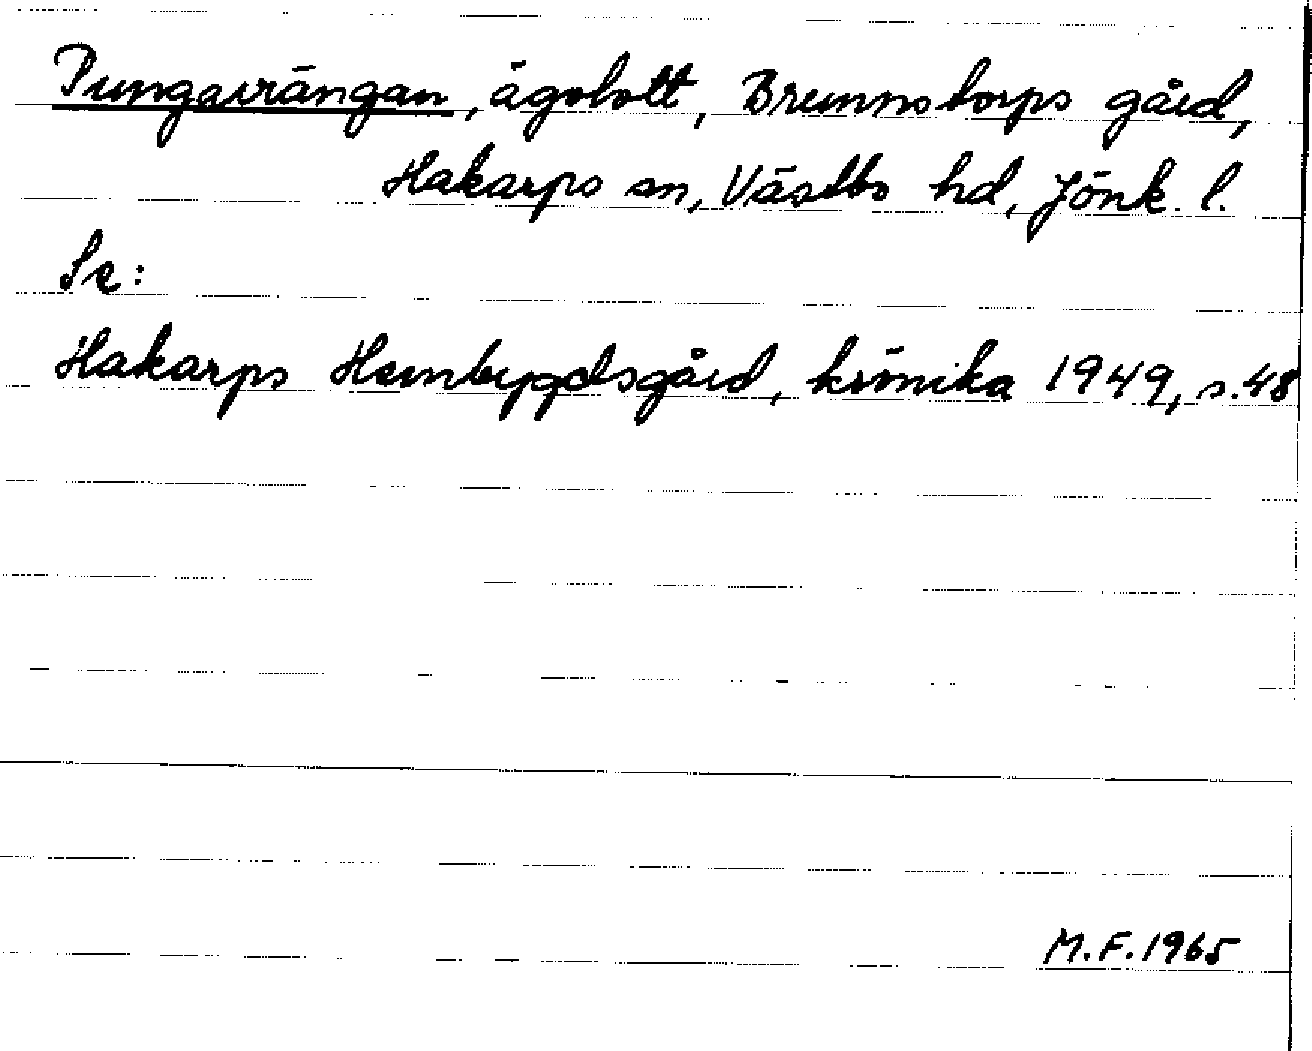 Pungavrängan, ägolott, Brunnstorps gård,
Hakarps sn, Västbo hd, Jönk. l.
Se:
Hakarps Hembygdsgård, krönika 1949, s.48
M.F.1965